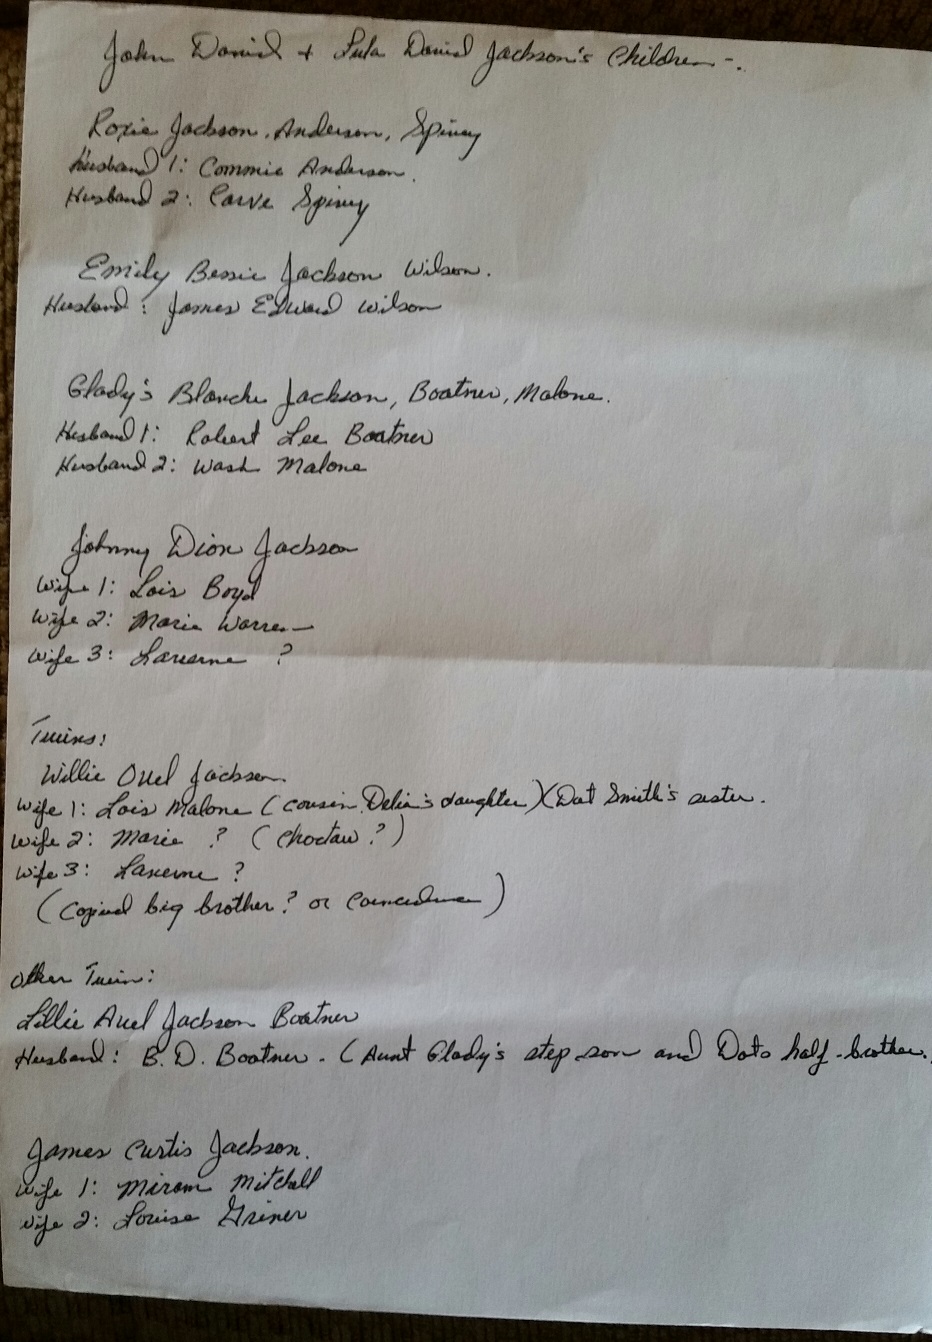 John Daniel + Lula Daniel Jackson's Children -.
Roxie Jackson, Anderson, Spivey
Husband 1: Commie Anderson.
Husband 2: Carve Spivey
Emily Bessie Jackson Wilson.
Husband: James Edward Wilson
Glady's Blanche Jackson, Boatner, Malone.
Husband 1: Robert Lee Boatner
Husband 2: Wash Malone
Johnny Dion Jackson
Wife 1: Lois Boyd
Wife 2: Marie Warren
Wife 3: Laverne ?
Twins:
Willie Ouel Jackson
Wife 1: Lois Malone (cousin Delia's daughter)(Dot Smith's sister.
Wife 2: Marie ? (Choctaw ?)
Wife 3: Laverne ?
(Copied big brother? or Coincidence)
Other Twin:
Lillie Auel Jackson Boatner
Husband: B.D. Boatner. (Aunt Glady's step son and Dots half-brother.
James Curtis Jackson.
Wife 1: Miram Mitchell
Wife 2: Louise Griner